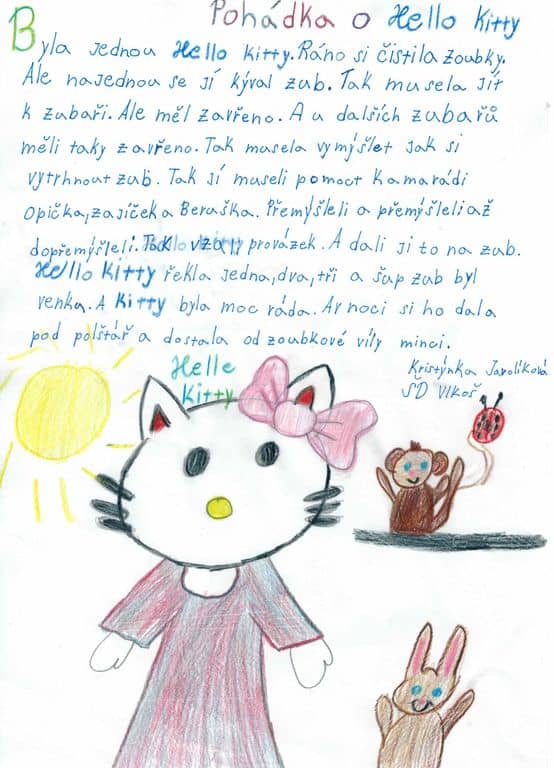 Pohádka o Hello Kitty
Byla jednou Hello Kitty. Ráno si čistila zoubky.
Ale najednou se jí kýval zub. Tak musela jít
k zubaři. Ale měl zavřeno. A u dalších zubařů
měli taky zavřeno. Tak musela vymýšlet jak si
vytrhnout zub. Tak jí museli pomoct kamarádi
opička, zajíček a Beruška. Přemýšleli a přemýšleli až
dopřemýšleli. vzali provázek. A dali ji to na zub.
Hello Kitty řekla jedna, dva, tři a šup zub byl
venka. A Kitty byla moc ráda. A v noci si ho dala
pod polštář a dostala od zoubkové víly minci.
Kristýnka Jarolíková
ŠD Vlkoš
Helle
Kitty